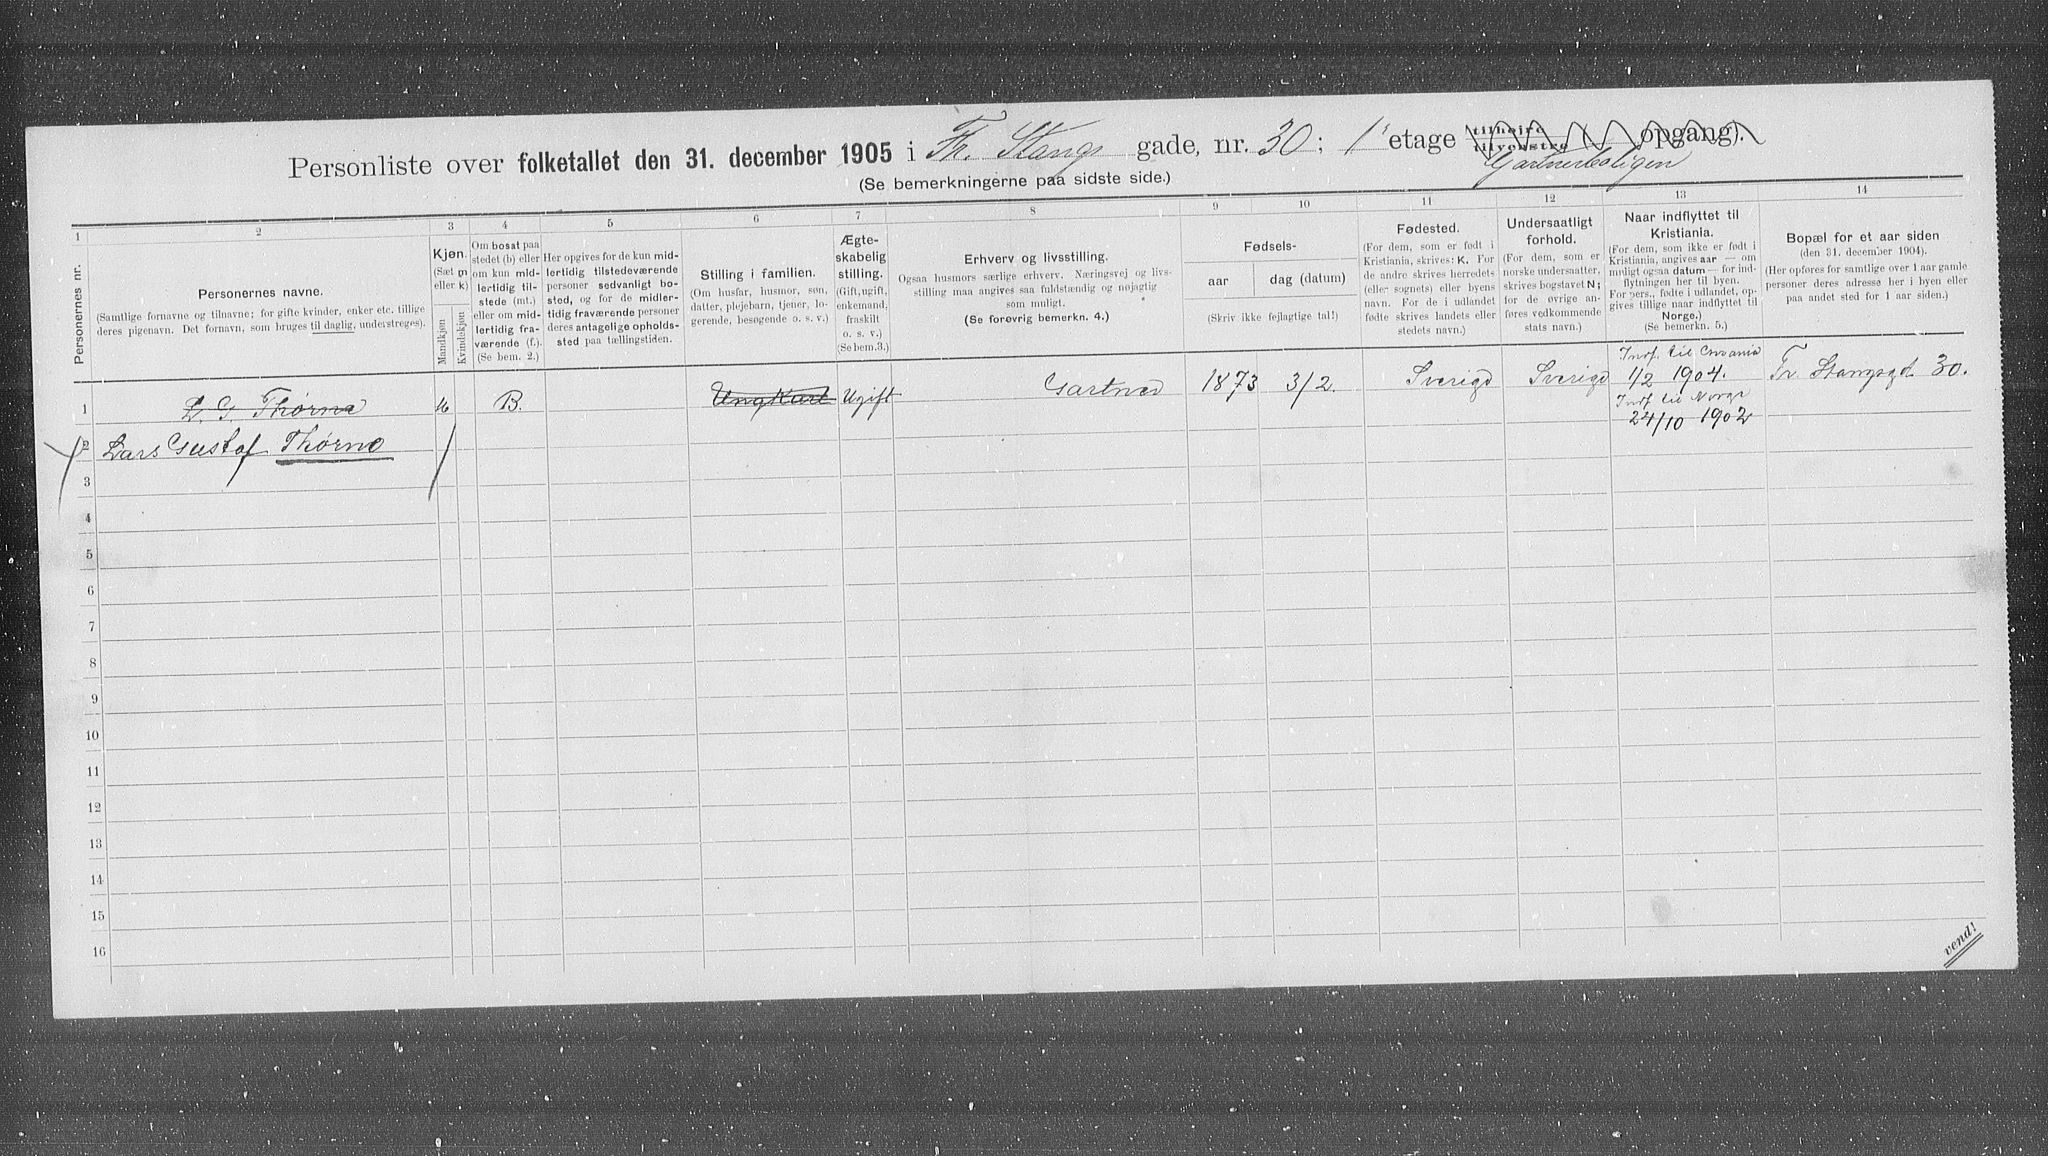 Personliste over folketallet den 31. december 1905 i Th. Stangs gade, nr. 30; 1' etage tilhøire tilvenstre ( opgang).
Gartnerboligen
(Se bemerkningerne paa sidste side.)
1 2 3 4 5 6 7 8 9 10 11 12 13 14
Personernes nr.
Personernes navne.
(Samtlige fornavne og tilnavne; for gifte kvinder, enker etc. tillige
deres pigenavn. Det fornavn, som bruges til daglig, understreges).
Kjøn.
(Sæt m
eller k)
Mandkjøn
Kvindekjøn
Om bosat paa
stedet (b) eller
om kun mid-
lertidig til-
stede (mt.)
eller om mid-
lertidig fra-
værende (f.).
(Se bem. 2.)
Her opgives for de kun mid-
lertidig tilstedeværende
personer sedvanlig bo-
sted, og for de midler-
tidig fraværende personer
deres antagelige opholds-
sted paa tællingstiden.
Stilling i familien.
(Om husfar, husmor, søn,
datter, plejebarn, tjener, lo-
gerende, besøgende o. s. v.)
Ægte-
skabelig
stilling.
(Gift, ugift,
enkemand,
fraskilt
o. s. v.)
(Se bem.3.)
Erhverv og livsstilling.
Ogsaa husmors særlige erhverv. Næringsvej og livs-
stilling maa angives saa fuldstændig og nøjagtig
som muligt.
(Se forøvrig bemerkn. 4.)
Fødsels-
aar
dag (datum)
(Skriv ikke fejlagtige tal!)
Fødested.
(For dem, som er født i
Kristiania, skrives: K. For
de andre skrives herredets
(eller sognets) eller byens
navn. For de i udlandet
fødte skrives landets eller
stedets navn.)
Undersaatligt
forhold.
(For dem, som er
norske undersaatter,
skrives bogstavet N;
for de øvrige an-
føres vedkommende
stats navn.)
Naar indflyttet til
Kristiania.
(For dem, som ikke er født i
Kristiania, angives aar — om
muligt ogsaa datum — for ind-
flytningen her til byen.
For pers., fødte i udlandet, op-
gives tillige naar indflyttet til
Norge.)
(Se bemerkn. 5.)
Bopæl for et aar siden
(den 31. december 1904).
(Her opføres for samtlige over 1 aar gamle
personer deres adresse her i byen eller
paa andet sted for 1 aar siden.)
1 L. G. Thørne M B. Ungkarl Ugift Gartner 1873 3/2. Sverige Sverige Indf. til Crania 1/2 1904. Fr. Stangsgd. 30.
Indf til Norge
24/10 1902
2 Lars Gustaf Thørne
3
4
5
6
7
8
9
10
11
12
13
14
15
16
vend!